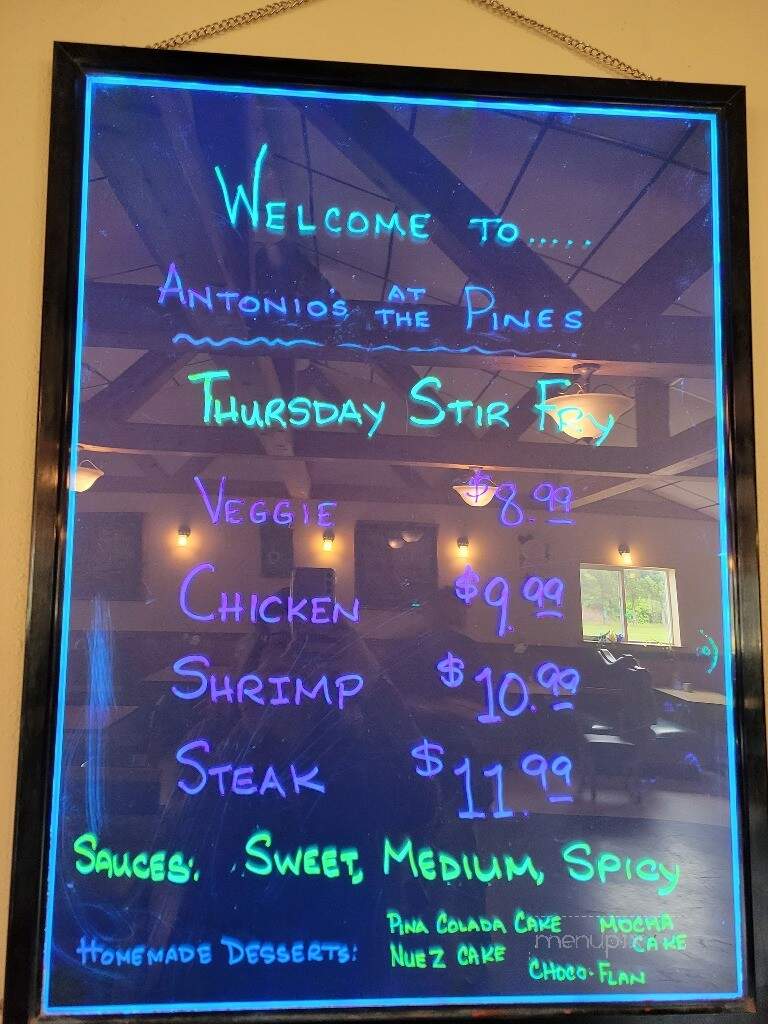 WELCOME TO.....
ANTONIO'S AT THE PINES
THURSDAY STIR FRY
VEGGIE $8.99
CHICKEN $9.99
SHRIMP $10.99
STEAK $11.99
SAUCES: SWEET, MEDIUM, SPICY
HOMEMADE DESSERTS: PINA COLADA CAKE MOCHA CAKE
NUEZ CAKE CHOCO-FLAN